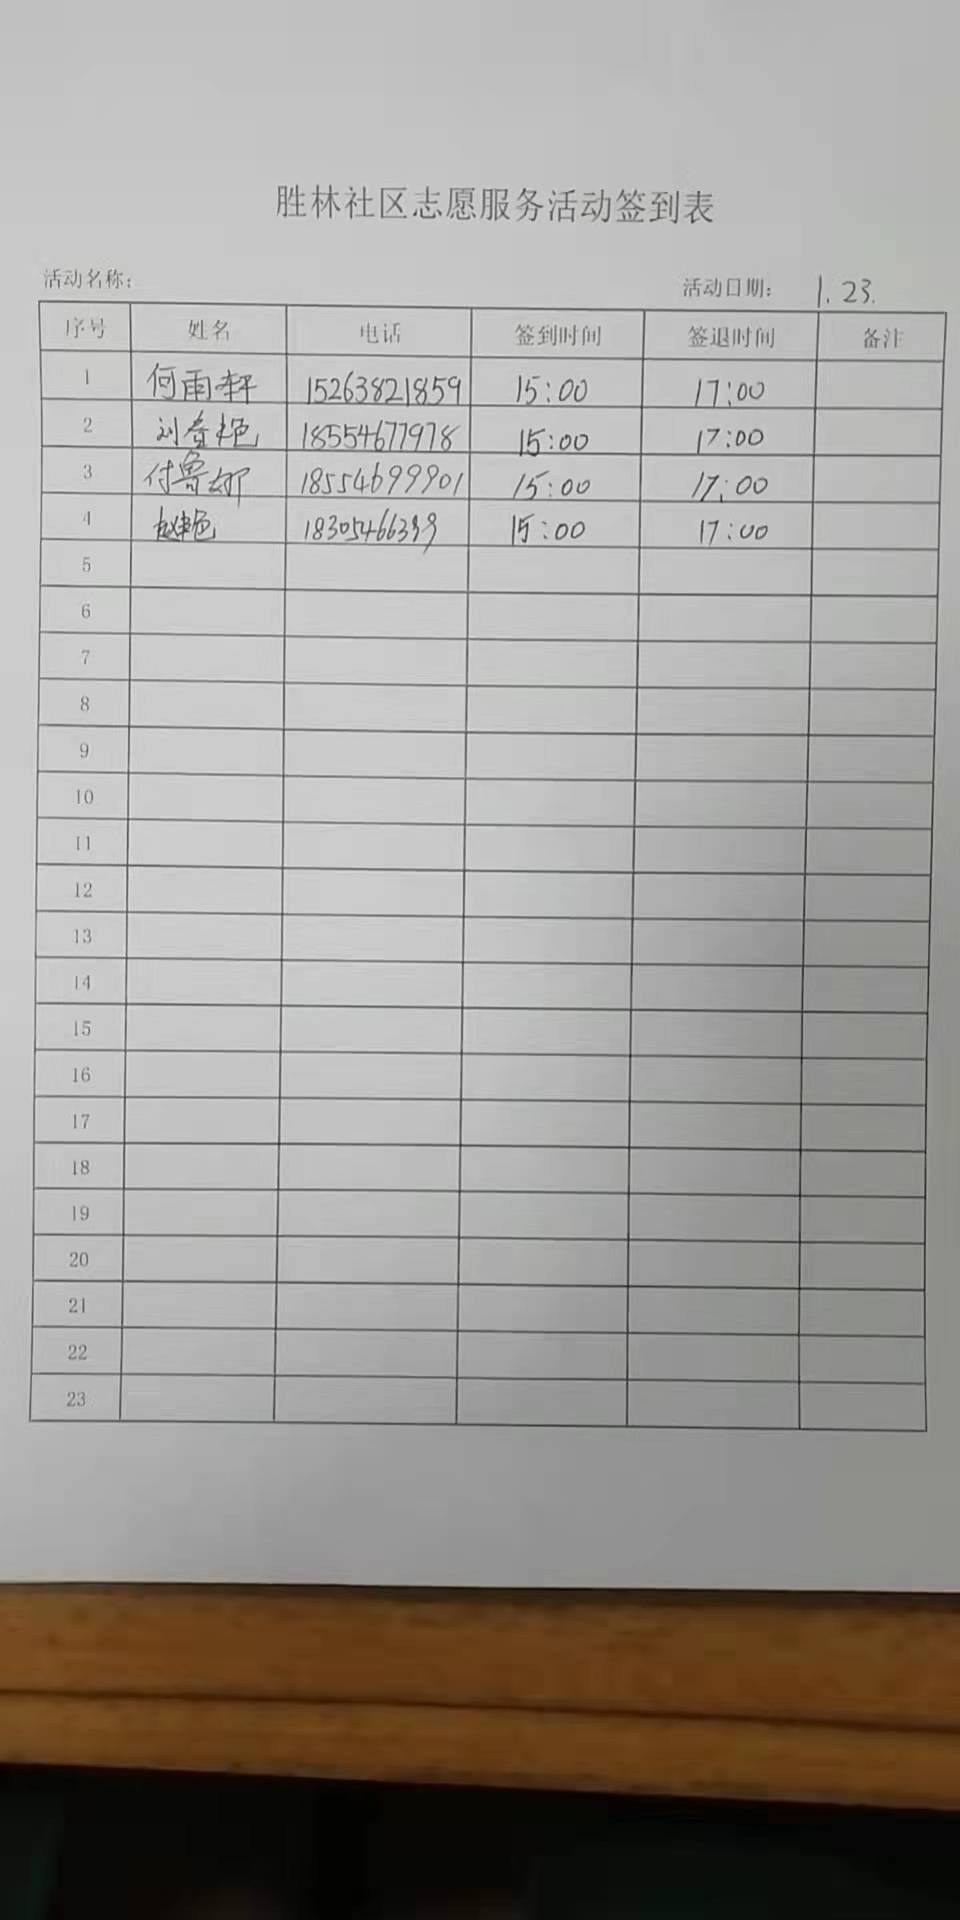 胜林社区志愿服务活动签到表
活动名称: 活动日期: 1.23.
序号 姓名 电话 签到时间 签退时间 备注
1 何雨轩 15263821859 15:00 17:00
2 刘春艳 18554677978 15:00 17:00
3 付鲁娜 18554699901 15:00 17:00
4 赵艳 15:00 17:00
5
6
7
8
9
10
11
12
13
14
15
16
17
18
19
20
21
22
23